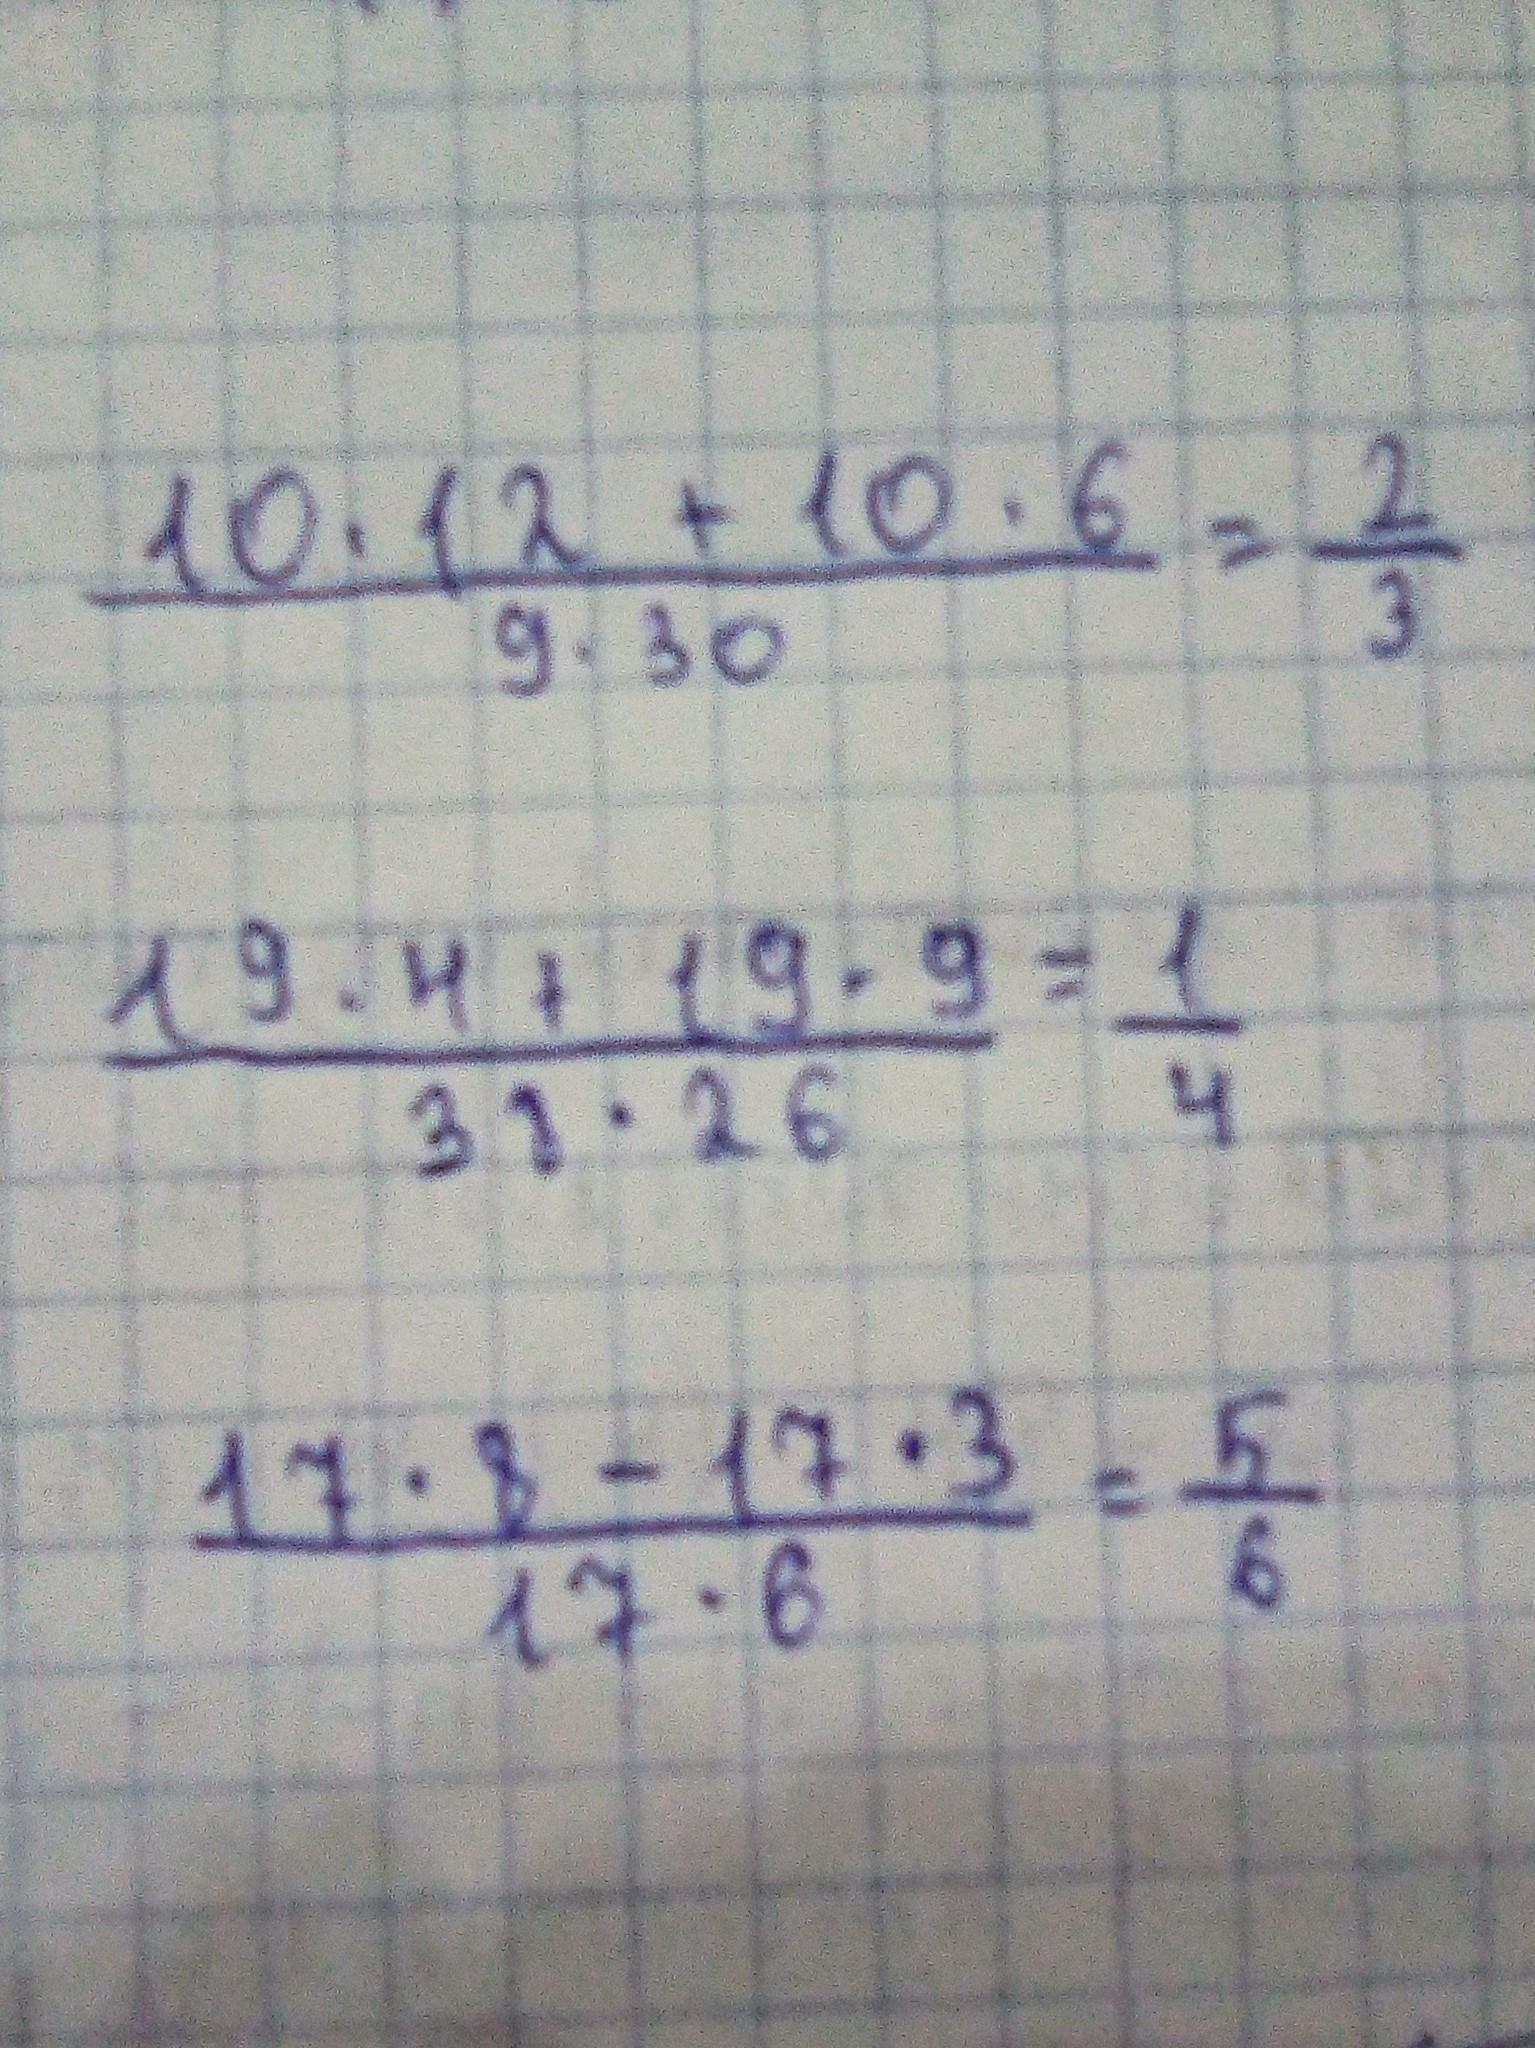 10·12 + 10·6 / 9·30 = 2/3
19·4 + 19·9 / 38·26 = 1/4
17·8 - 17·3 / 17·6 = 5/6